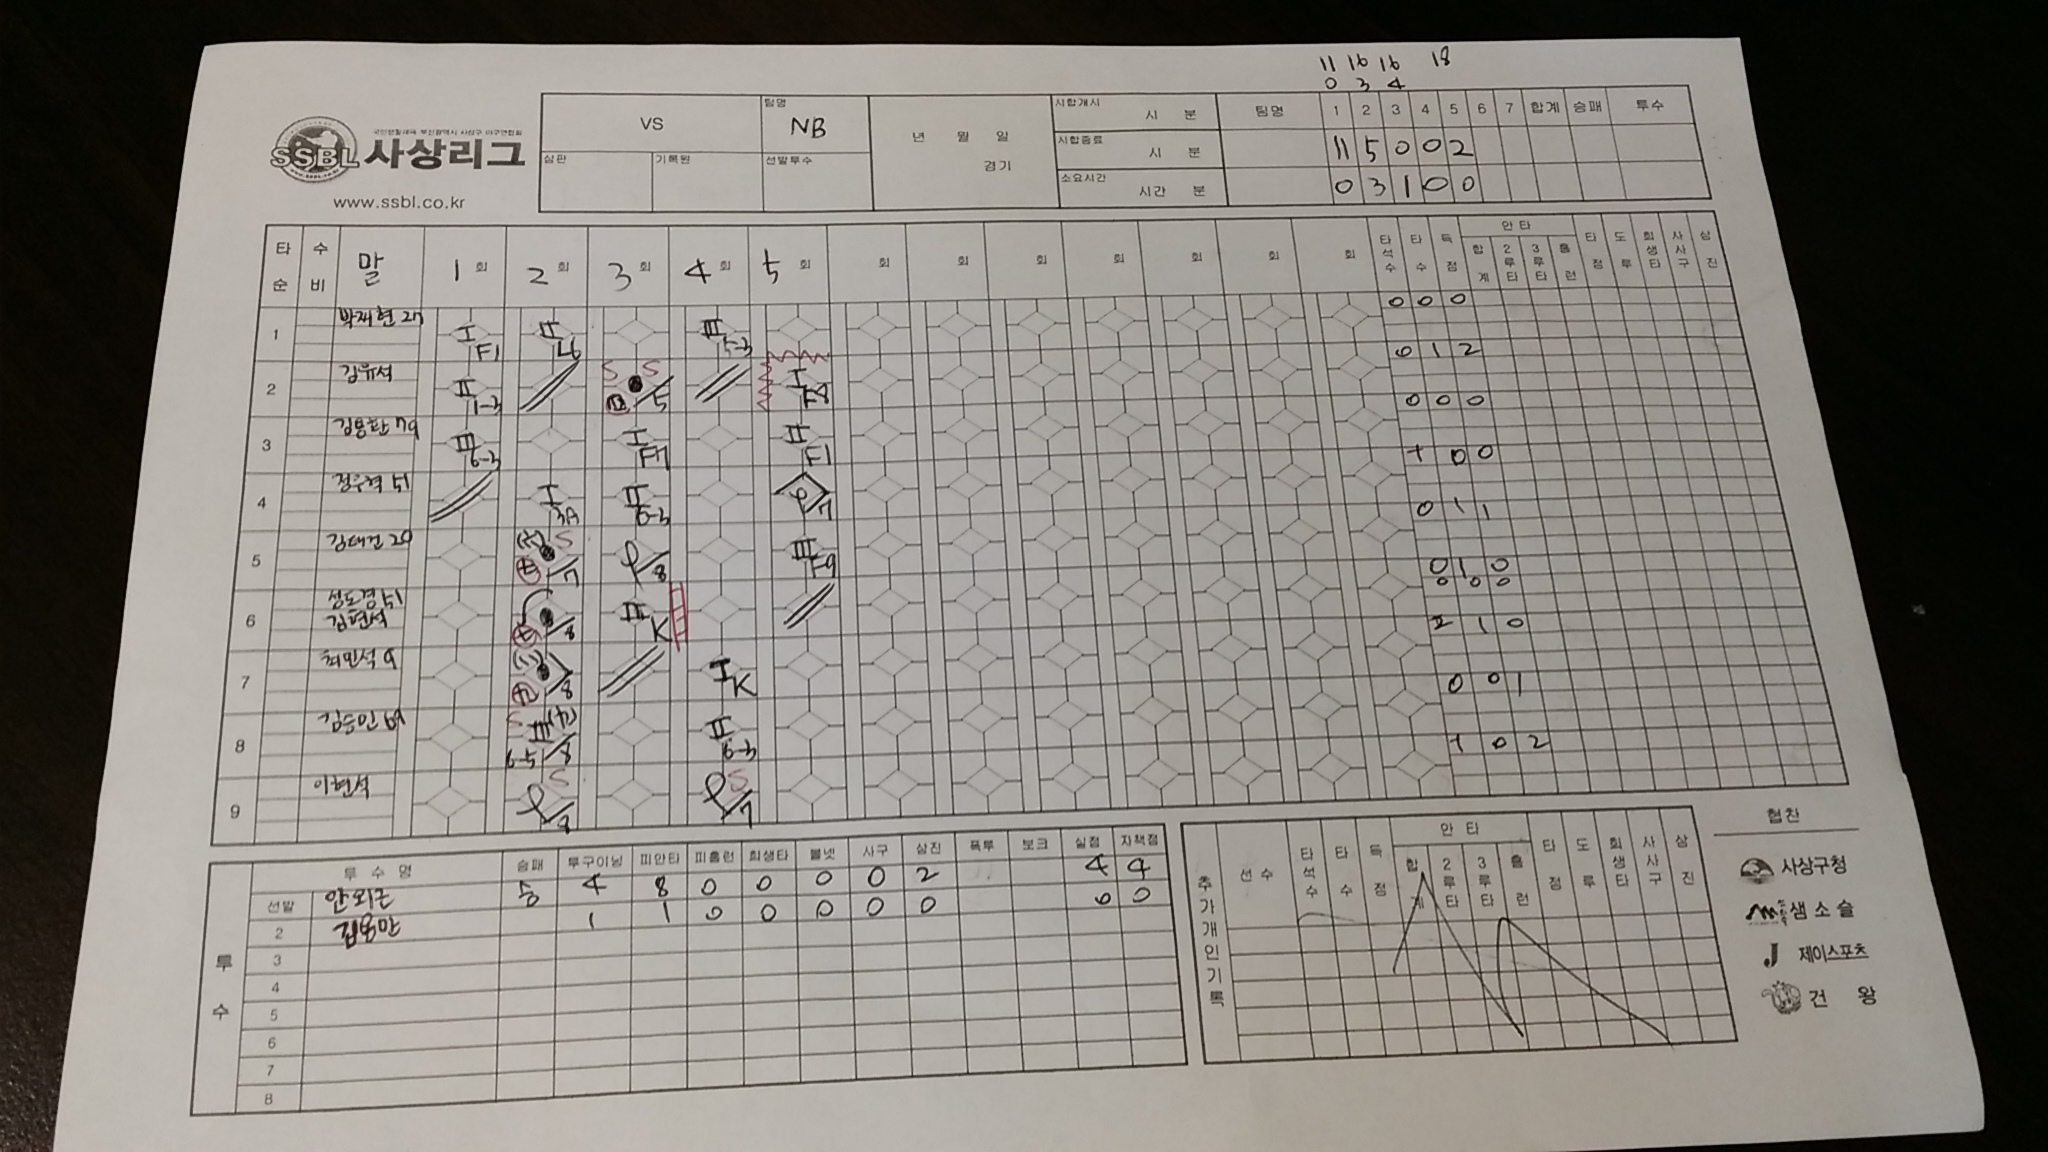 11 16 16 18
0 3 4
국민생활체육 부산광역시 사상구 야구연합회
SSBL 사상리그
www.ssbl.co.kr
VS 팀명 NB
심판 기록원 선발투수
년 월 일
경기
시합개시 시 분
시합종료 시 분
소요시간 시간 분
팀명 1 2 3 4 5 6 7 합계 승패 투수
11 5 0 0 2
0 3 1 0 0
타순 수비 말 1회 2회 3회 4회 5회 회 회 회 회 회 회 회 타석수 타수 득점 안타 합계 2루타 3루타 홈런 타점 도루 희생타 사사구 삼진
1 박재현 27 I F1 II L6 III 5-3 0 0 0
2 김유석 II 1-3 S S /5 I F8 0 1 2
3 79 III 6-3 I F7 II F1 0 0 0
4 정우혁 51 I 3A II 6-3 7 + 0 0
5 20 S /7 /8 III F9 0 1 1
6 51 /8 III K 0 1 0
김현석 0 0 0
7 최민석 9 /8 I K I 1 0
8 69 S III 6-5 /8 II 6-3 0 0 1
9 이현석 S /8 S /7 + 0 2
투수 투수명 승패 투구이닝 피안타 피홈런 희생타 볼넷 사구 삼진 폭투 보크 실점 자책점
선발 안회근 승 4 8 0 0 0 0 2 4 4
2 1 1 0 0 0 0 0 0 0
3
4
5
6
7
8
추가개인기록 선수 타석수 타수 득점 안타 합계 2루타 3루타 홈런 타점 도루 희생타 사사구 삼진
협찬
사상구청
샘소슬
J 제이스포츠
건 왕